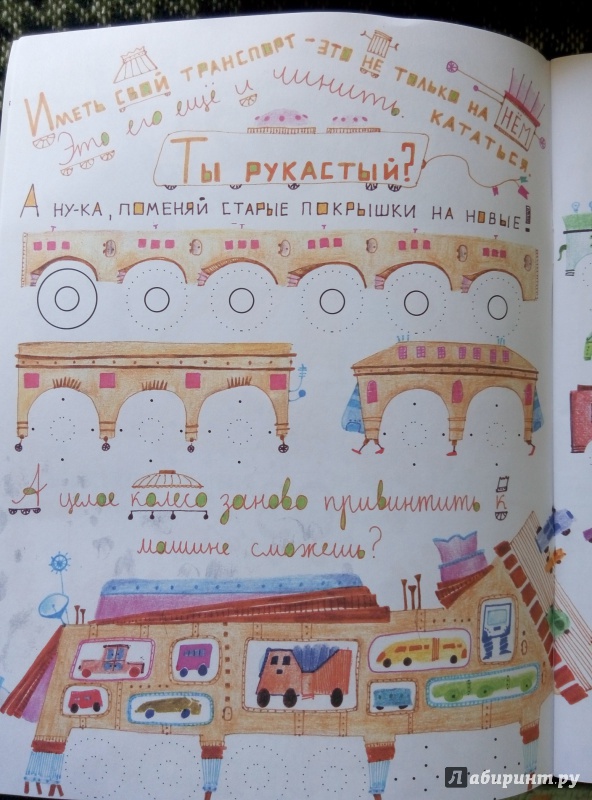 Иметь свой транспорт - это не только на нём кататься.
Это его ещё и чинить.
Ты рукастый?
А ну-ка, поменяй старые покрышки на новые!
А целое колесо заново привинтить к
машине сможешь?
Лабиринт.ру